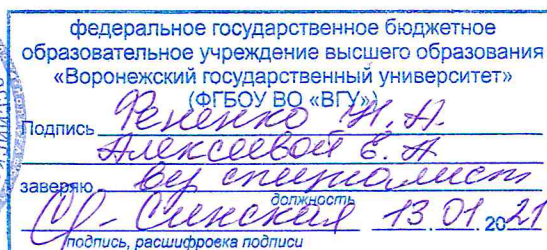 федеральное государственное бюджетное
образовательное учреждение высшего образования
«Воронежский государственный университет»
(ФГБОУ ВО «ВГУ»)
Подпись Фененко Н.А.
Алексеевой Е.А
заверяю вед специалист
должность
Синская 13.01.2021
подпись, расшифровка подписи